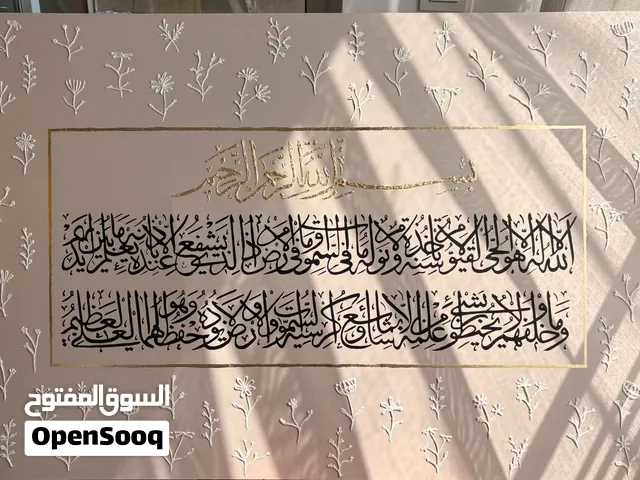 بسم الله الرحمن الرحيم
الله لا إله إلا هو الحي القيوم لا تأخذه سنة ولا نوم له ما في السموات وما في الأرض من ذا الذي يشفع عنده إلا بإذنه يعلم ما بين أيديهم
وما خلفهم ولا يحيطون بشيء من علمه إلا بما شاء وسع كرسيه السموات والأرض ولا يؤده حفظهما وهو العلي العظيم
السوق المفتوح
OpenSooq